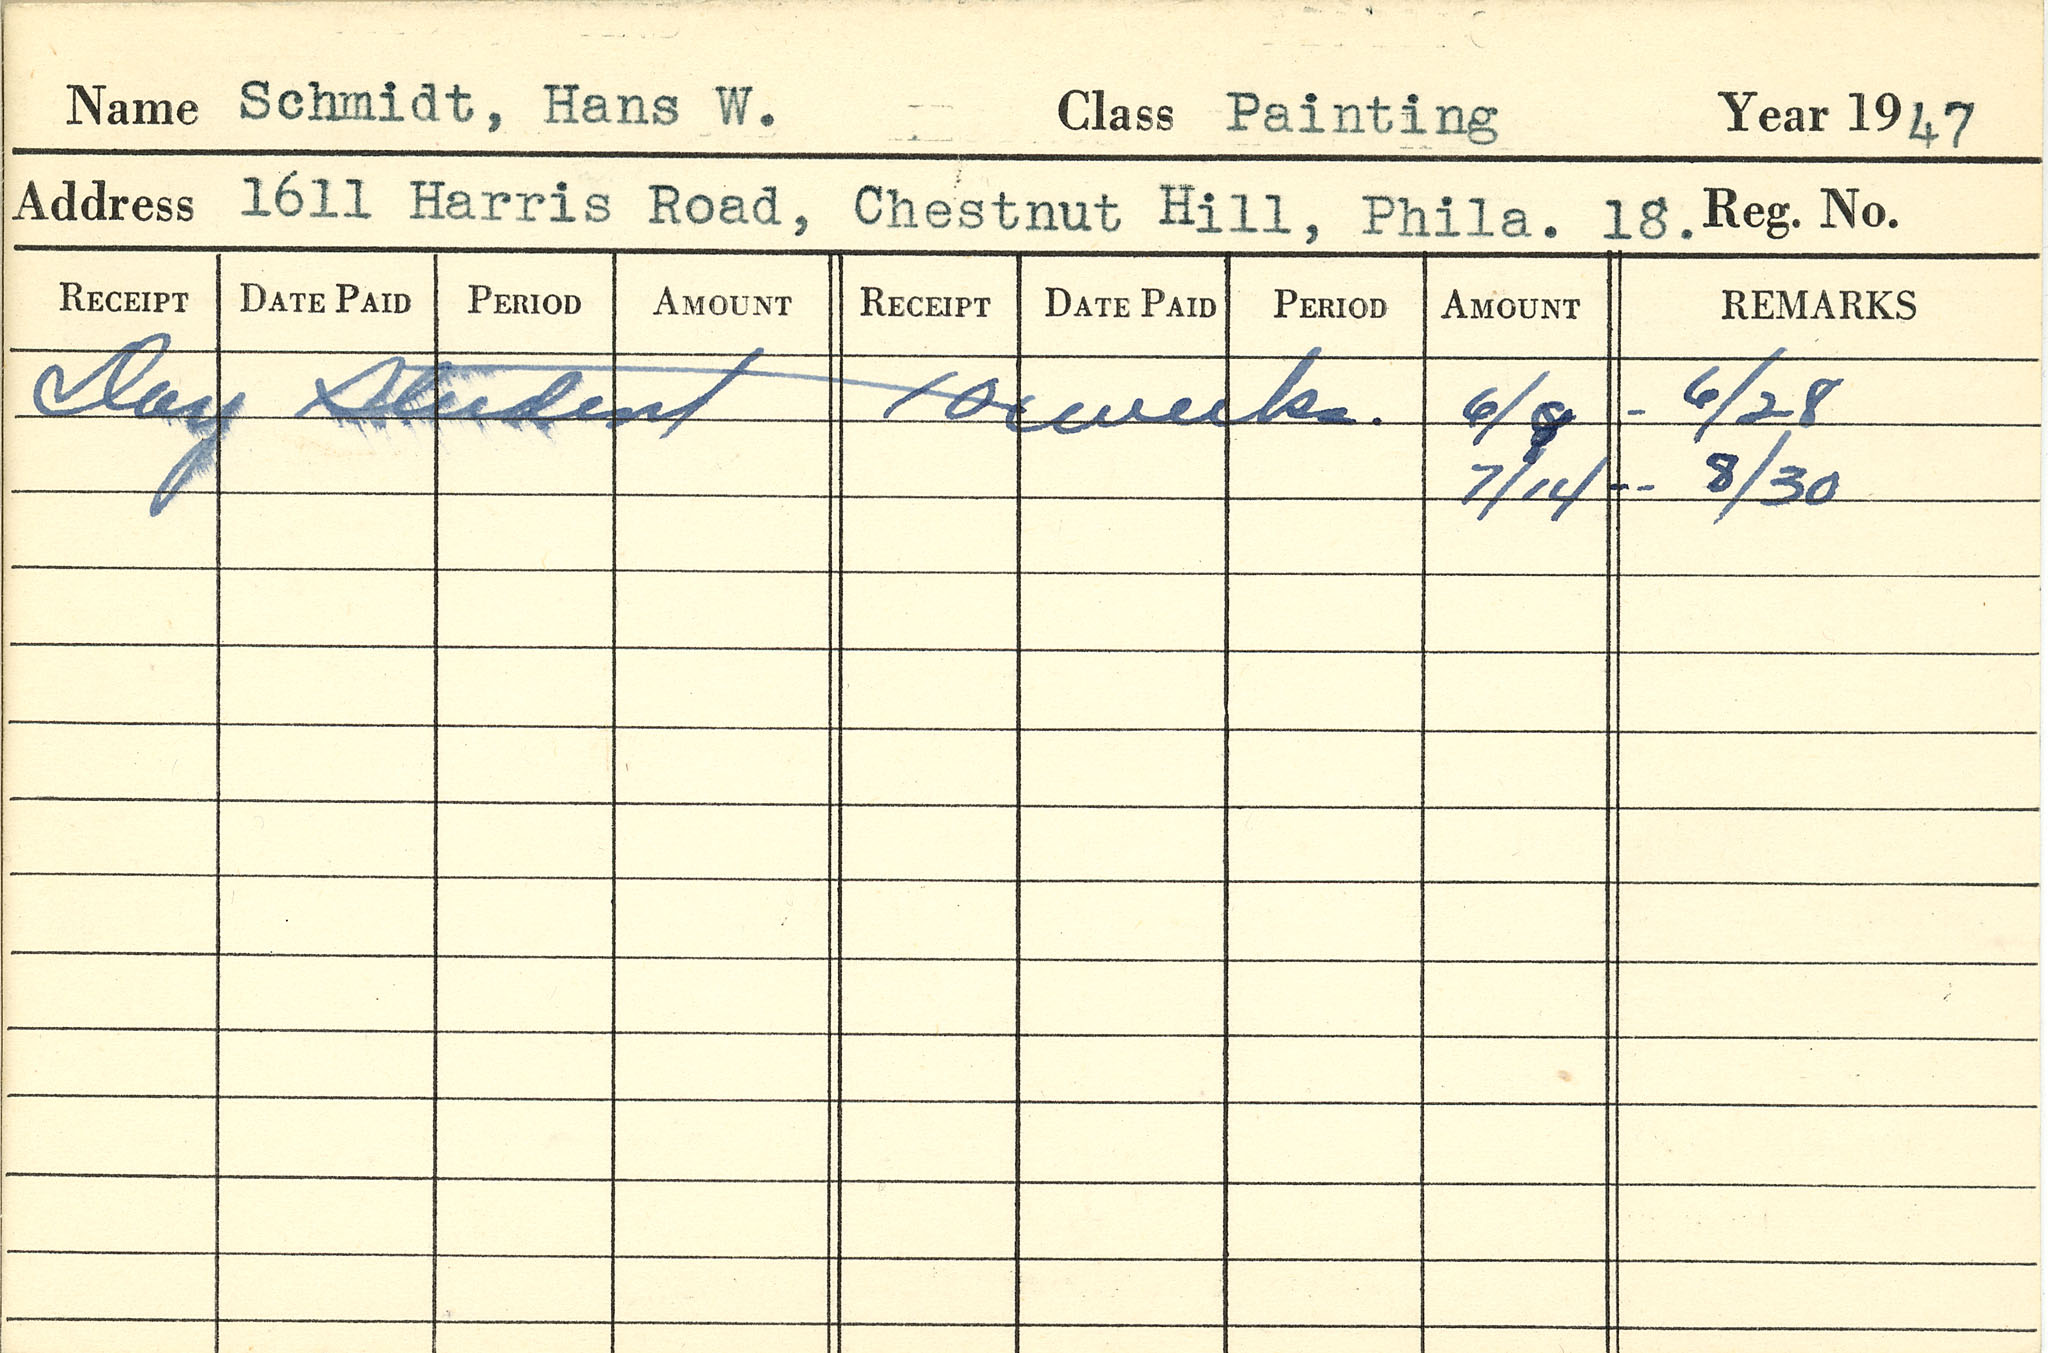 Name Schmidt, Hans W. Class Painting Year 1947
Address 1611 Harris Road, Chestnut Hill, Phila. 18. Reg. No.
RECEIPT DATE PAID PERIOD AMOUNT RECEIPT DATE PAID PERIOD AMOUNT REMARKS
Day Student 10 weeks. 6/8 - 6/28
7/14 -- 8/30